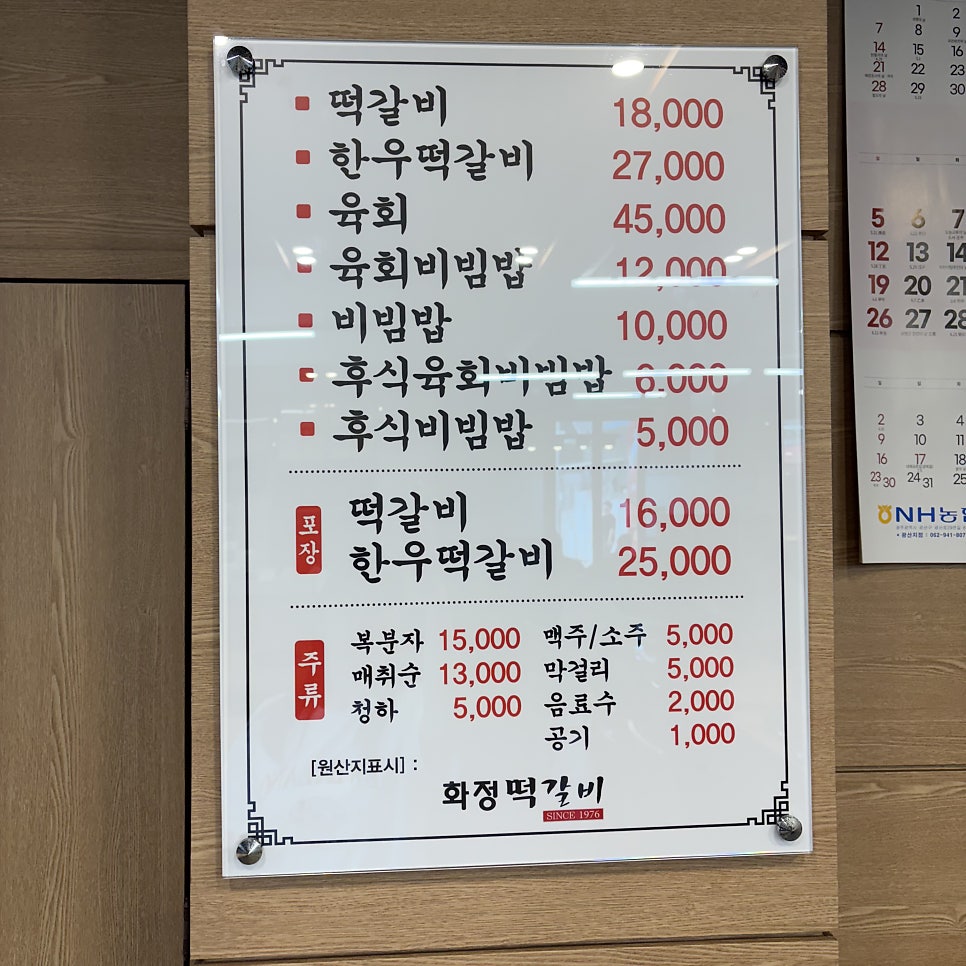 떡갈비 18,000
한우떡갈비 27,000
육회 45,000
육회비빔밥 12,000
비빔밥 10,000
후식육회비빔밥 6,000
후식비빔밥 5,000
포장
떡갈비 16,000
한우떡갈비 25,000
주류
복분자 15,000 맥주/소주 5,000
매취순 13,000 막걸리 5,000
청하 5,000 음료수 2,000
공기 1,000
[원산지표시] :
화정떡갈비
SINCE 1976
1 2
7 8 9
14 15 16
21 22 23
28 29 30
5 6 7
12 13 14
19 20 21
26 27 28
2 3 4
9 10 11
16 17 18
23 30 24 31 25
NH농협